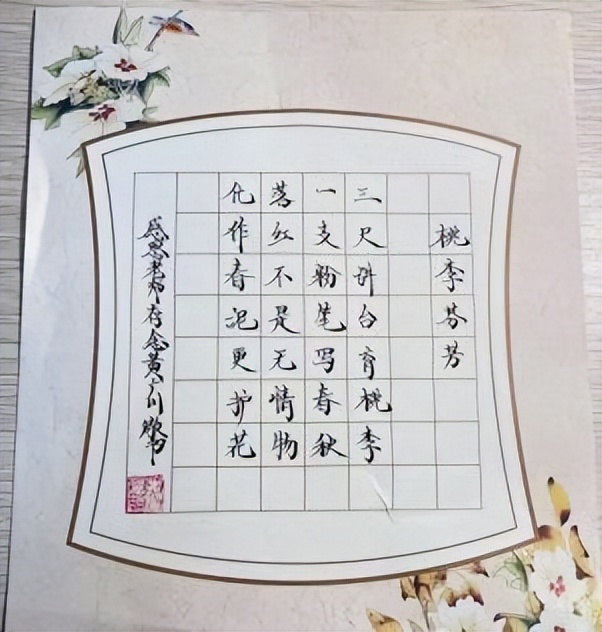 桃李芬芳
三尺讲台育桃李
一支粉笔写春秋
落红不是无情物
化作春泥更护花
感恩老师存念黄广川敬书